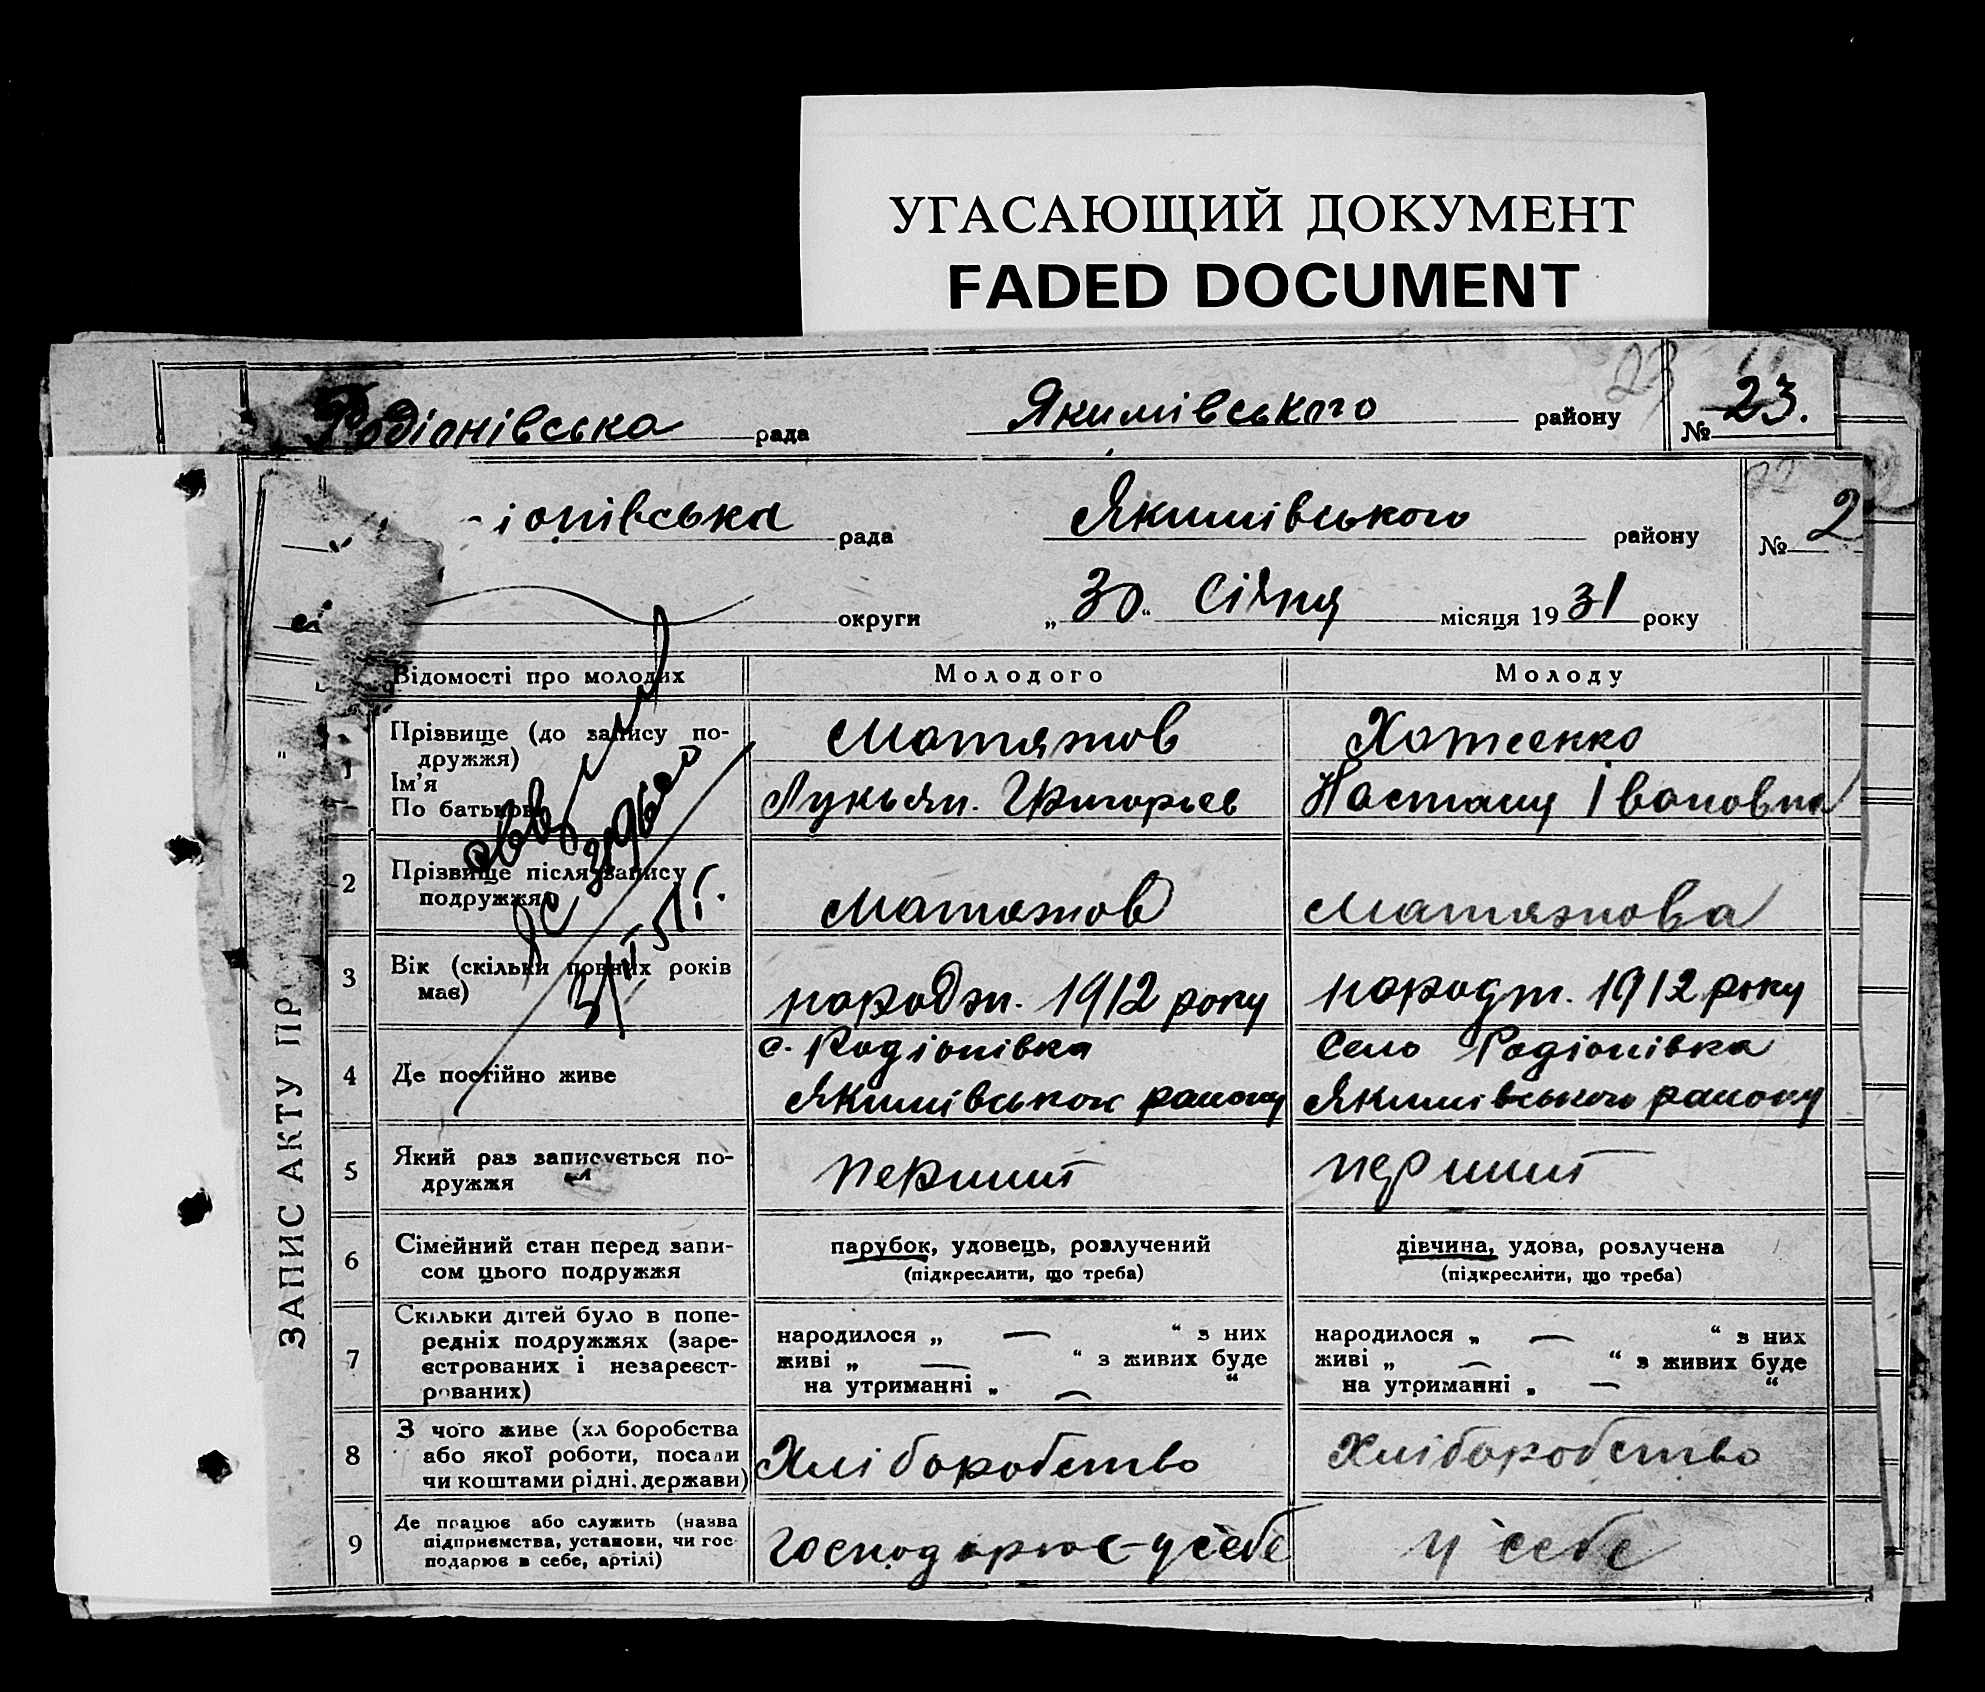 УГАСАЮЩИЙ ДОКУМЕНТ
FADED DOCUMENT
Родіонівська рада Якимівського району № 23.
іонівська рада Якимівського району № 2
округи „30“ Січня місяця 1931 року
ЗАПИС АКТУ ПР
Відомості про молодих Молодого Молоду
1 Прізвище (до запису по-
дружжя) Матяжов Хотеенко
Ім'я
По батькові Лукьян. Григорьев Насташу Івановна
2 Прізвище після запису
подружжя Матяжов Матяжова
3 Вік (скільки повних років
має) народж. 1912 року народж. 1912 року
с. Родіонівка Село Родіонівка
4 Де постійно живе
Якимівського району Якимівського району
5 Який раз записується по-
дружжя перший перший
6 Сімейний стан перед запи-
сом цього подружжя
парубок, удовець, розлучений дівчина, удова, розлучена
(підкреслити, що треба) (підкреслити, що треба)
7 Скільки дітей було в попе-
редніх подружжях (заре-
єстрованих і незареєст-
рованих)
народилося „ — “ з них народилося „ — “ з них
живі „ — “ з живих буде живі „ — “ з живих буде
на утриманні „ — “ на утриманні „ — “
8 З чого живе (хл боробства
або якої роботи, посади
чи коштами рідні, держави) Хліборобство Хліборобство
9 Де працює або служить (назва
підприємства, установи, чи гос
подарює в себе, артілі) господарює у себе у себе